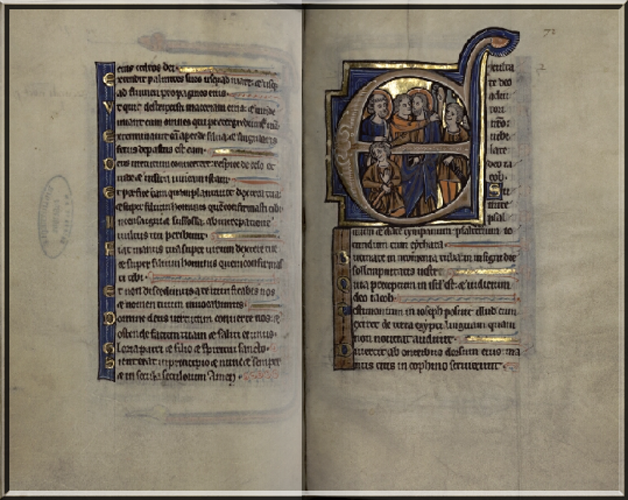 eius cedros dei
extendit palmites suos usq ad mare et usq
ad flumen propagines eius
t quid destruxisti maceriam eius et uinde
miant eam omnes qui
xterminauit eam aper de silua et singularis
ferus depastus est eam
eus uirtutum conuertere respice de celo et
uide et uisita uineam istam
t perfice eam quam plantauit dextera tua
et super filium hominis quem confirmasti tibi
ncensa igni et suffossa ab increpatione
uultus tui peribunt
iat manus tua super uirum dextere tue
et super filium hominis quem confirmas
ti tibi
Et non discedimus a te uiuificabis nos
et nomen tuum inuocabimus
Domine deus uirtutum conuerte nos et
ostende faciem tuam et salui erimus
Gloria patri et filio et spiritui sancto
Sicut erat in principio et nunc et semper
et in secula seculorum amen
E xulta
te deo
adiu
tori
iubi
late
deo ia
cob
Su
mite
psal
mum et date tympanum psalterium io
cundum cum cythara
Buccinate in neomenia tuba in insigni die
sollempnitatis uestre
Quia preceptum in isrl est et iudicium
deo iacob
Testimonium in ioseph posuit illud cum
exiret de terra egypti linguam quam
non nouerat audiuit
Diuertit ab oneribus dorsum eius ma
nus eius in cophino seruierunt